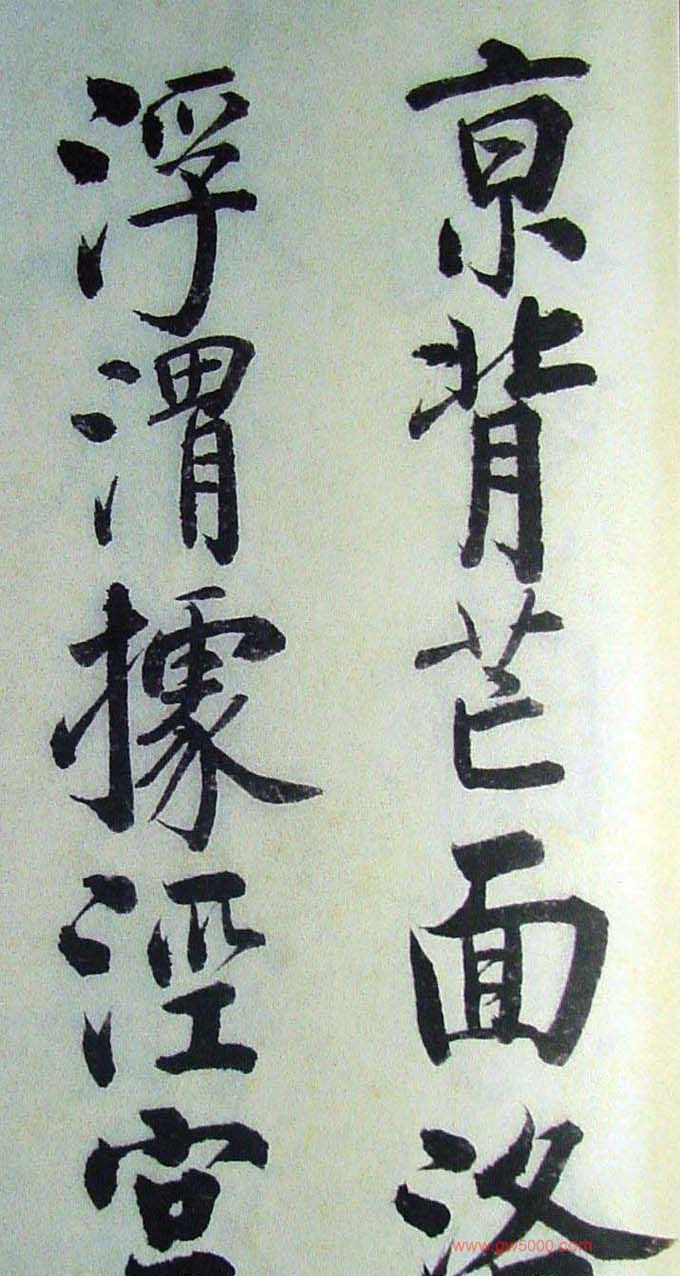 京背芒面洛
浮渭據涇宮
www.gw5000.com